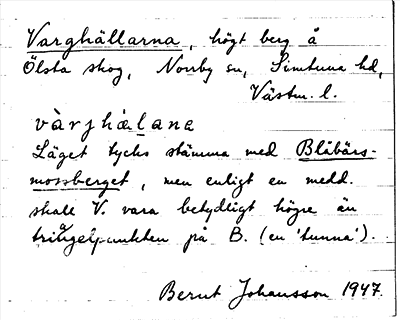 Varghällarna, högt berg å
Ölsta skog, Norrby sn, Simtuna hd,
Västm. l.
vàrjhä̀lana
Läget tycks stämma med Blåbärs-
mossberget, men enligt en medd.
skale V. vara betydligt högre än
triangelpunkten på B. (en 'tunna').
Bernt Johansson 1947.